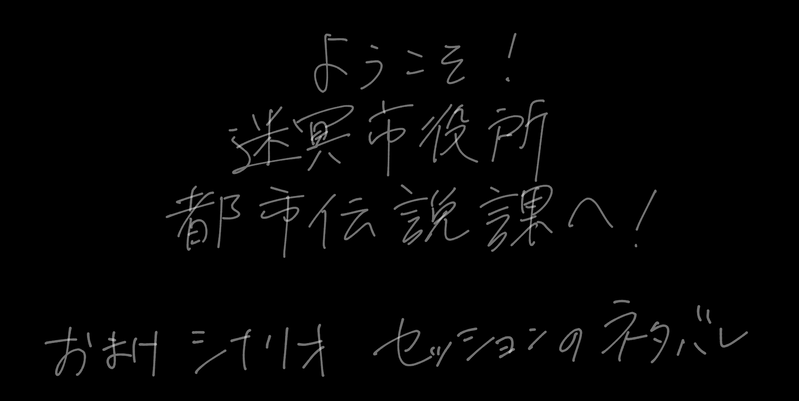 ようこそ!
迷冥市役所
都市伝説課へ!
おまけ シナリオ セッションのネタバレ